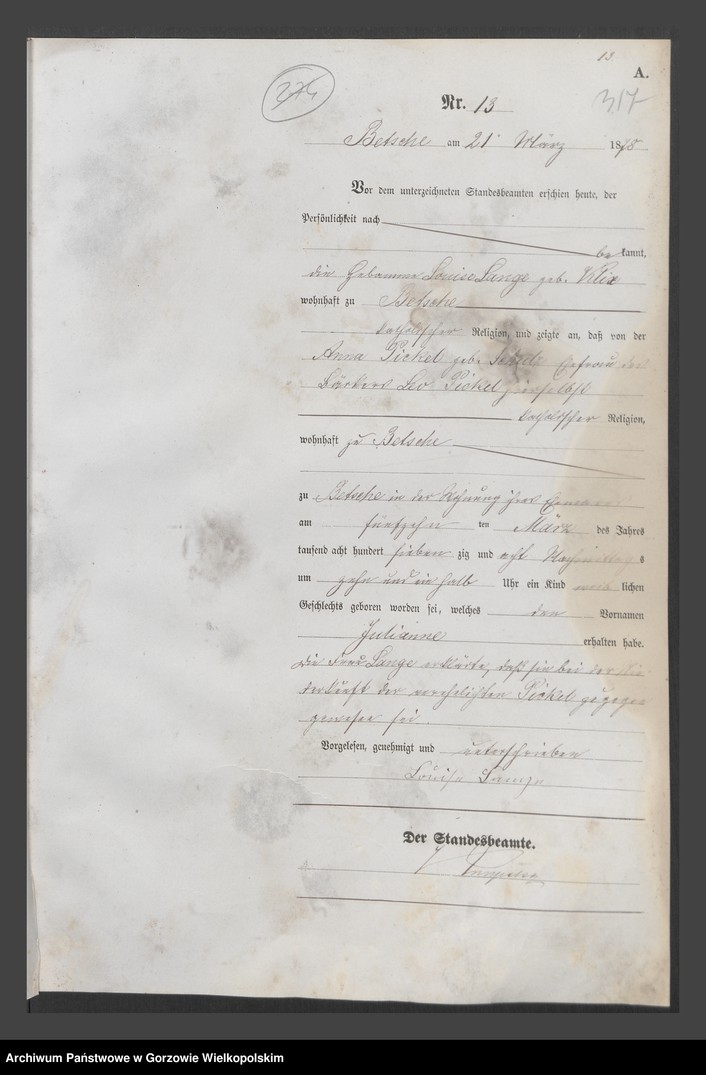 13
A.
274
Nr. 13
317
Betsche am 21 März 1878
Vor dem unterzeichneten Standesbeamten erschien heute, der
Persönlichkeit nach
be kannt,
die Hebamme Louise Lange geb. Klix
wohnhaft zu Betsche
katholischer Religion, und zeigte an, daß von der
Anna Pickel geb. Ehefrau des
Bäckers Leo Pickel hierselbst
katholischer Religion,
wohnhaft zu Betsche
zu Betsche in der Wohnung ihres Ehemannes
am fünfzehn ten März des Jahres
tausend acht hundert sieben zig und acht Nachmittag s
um zehn und ein halb Uhr ein Kind weib lichen
Geschlechts geboren worden sei, welches den Vornamen
Julianne erhalten habe.
Die Frau Lange erklärte, daß sie bei der Nie
derkunft der verehelichten Pickel zugegen
gewesen sei.
Vorgelesen, genehmigt und unterschrieben
Louise Lange
Der Standesbeamte.
Archiwum Państwowe w Gorzowie Wielkopolskim